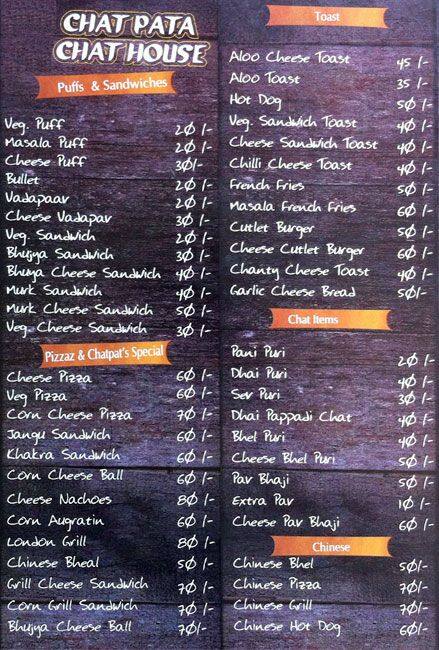 CHAT PATA
CHAT HOUSE
Puffs & Sandwiches
Veg. Puff 20 /-
Masala Puff 20 /-
Cheese Puff 30/-
Bullet 20 /-
Vadapaav 20 /-
Cheese Vadapav 30 /-
Veg. Sandwich 20 /-
Bhujya Sandwich 30 /-
Bhuya Cheese Sandwich 40 /-
Murk Sandwich 40 /-
Murk Cheese Sandwich 50 /-
Veg. Cheese Sandwich 30 /-
Pizzaz & Chatpat's Special
Cheese Pizza 60 /-
Veg Pizza 60 /-
Corn Cheese Pizza 70 /-
Jangu Sandwich 60 /-
Khakra Sandwich 60 /-
Corn Cheese Ball 60 /-
Cheese Nachoes 80 /-
Corn Augratin 60 /-
London Grill 80 /-
Chinese Bheal 50 /-
Grill Cheese Sandwich 70 /-
Corn Grill Sandwich 70 /-
Bhujya Cheese Ball 70/-
Toast
Aloo Cheese Toast 45 /-
Aloo Toast 35 /-
Hot Dog 50 /-
Veg. Sandwich Toast 40 /-
Cheese Sandwich Toast 40 /-
Chilli Cheese Toast 40 /-
French Fries 50 /-
Masala French Fries 60 /-
Cutlet Burger 50 /-
Cheese Cutlet Burger 60 /-
Chanty Cheese Toast 40 /-
Garlic Cheese Bread 50/-
Chat Items
Pani Puri 20 /-
Dhai Puri 40 /-
Sev Puri 30 /-
Dhai Pappadi Chat 40 /-
Bhel Puri 40 /-
Cheese Bhel Puri 50 /-
Pav Bhaji 50 /-
Extra Pav 10 /-
Cheese Pav Bhaji 60 /-
Chinese
Chinese Bhel 50/-
Chinese Pizza 70/-
Chinese Grill 70/-
Chinese Hot Dog 60/-